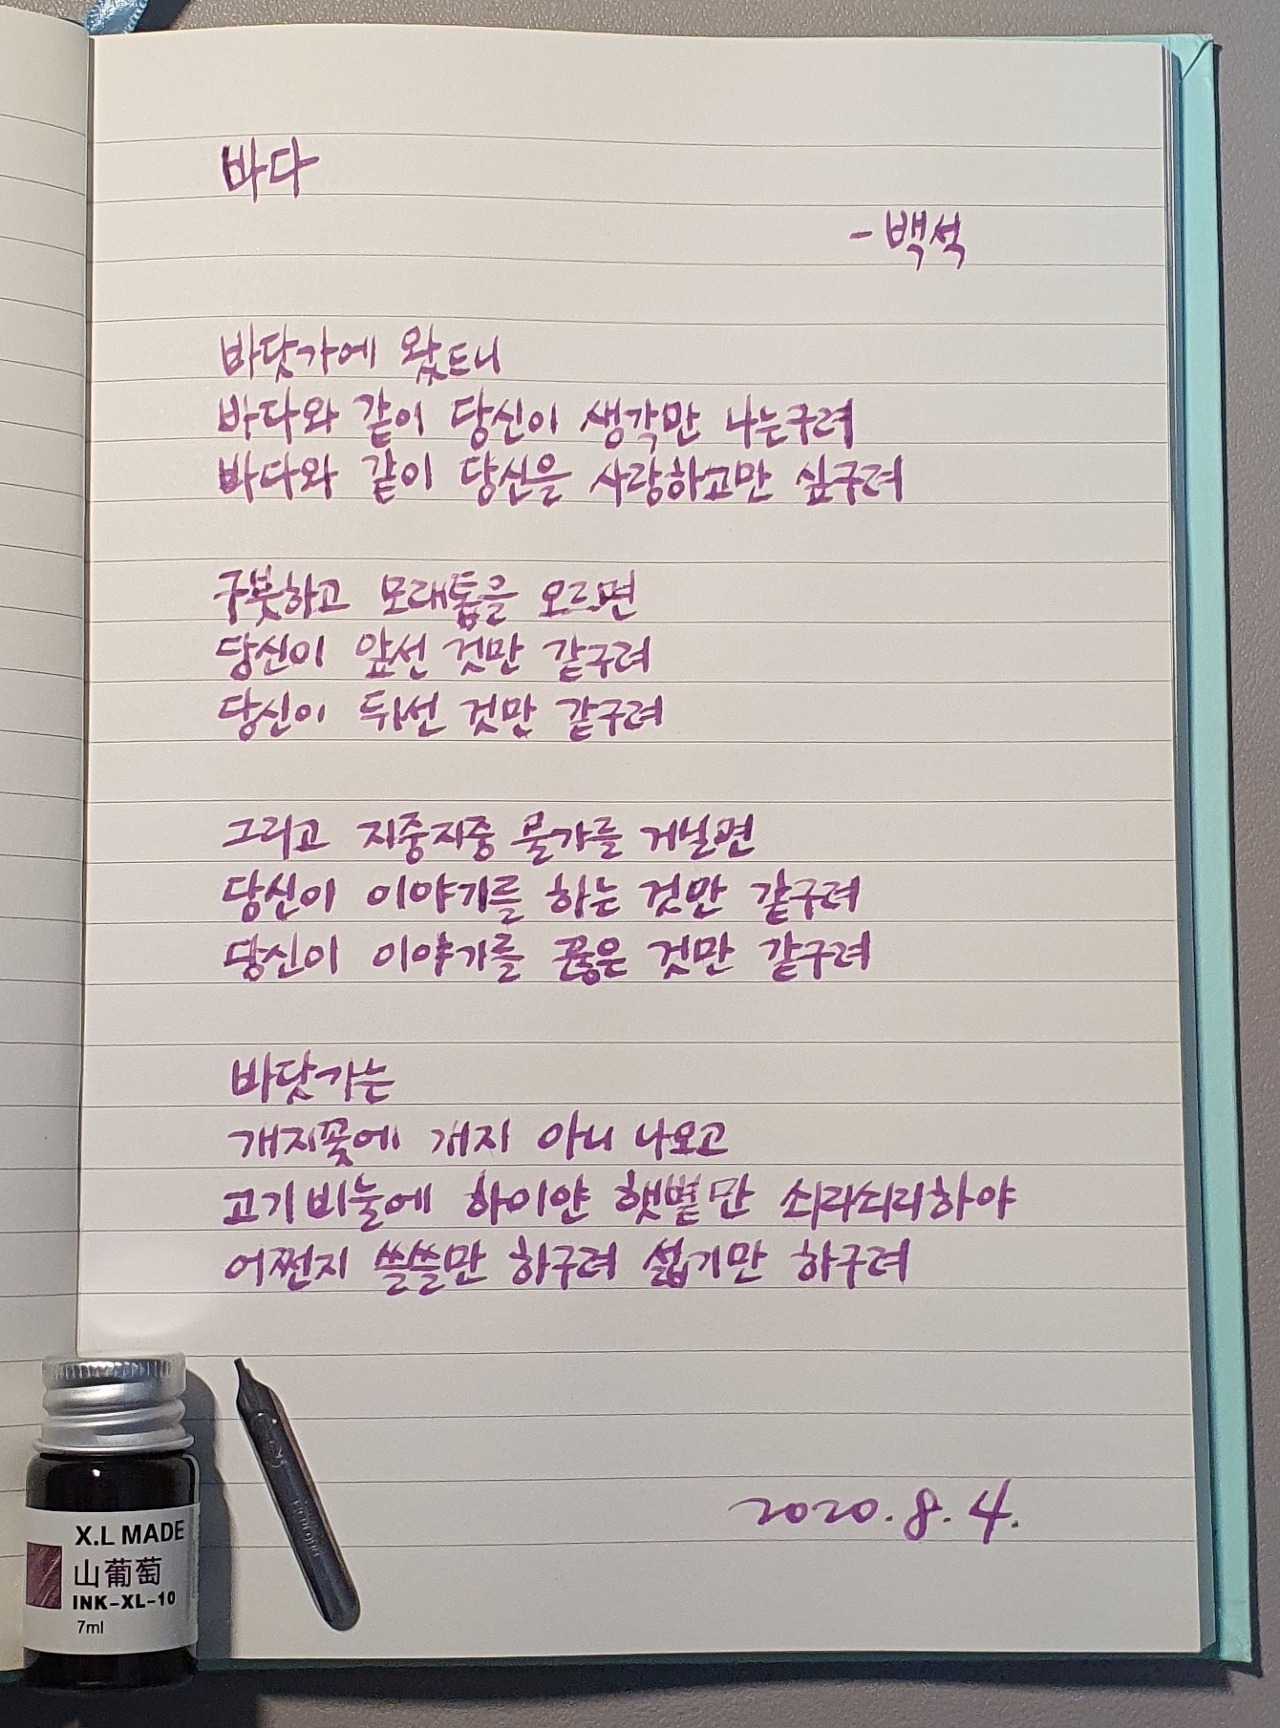 바다
- 백석
바닷가에 왔드니
바다와 같이 당신이 생각만 나는구려
바다와 같이 당신을 사랑하고만 싶구려
구붓하고 모래톱을 오르면
당신이 앞선 것만 같구려
당신이 뒤선 것만 같구려
그리고 지중지중 물가를 거닐면
당신이 이야기를 하는 것만 같구려
당신이 이야기를 끊은 것만 같구려
바닷가는
개지꽃에 개지 아니 나오고
고기비눌에 하이얀 햇볕만 쇠리쇠리하야
어쩐지 쓸쓸만 하구려 섧기만 하구려
2020. 8. 4.
X.L MADE
山葡萄
INK-XL-10
7ml